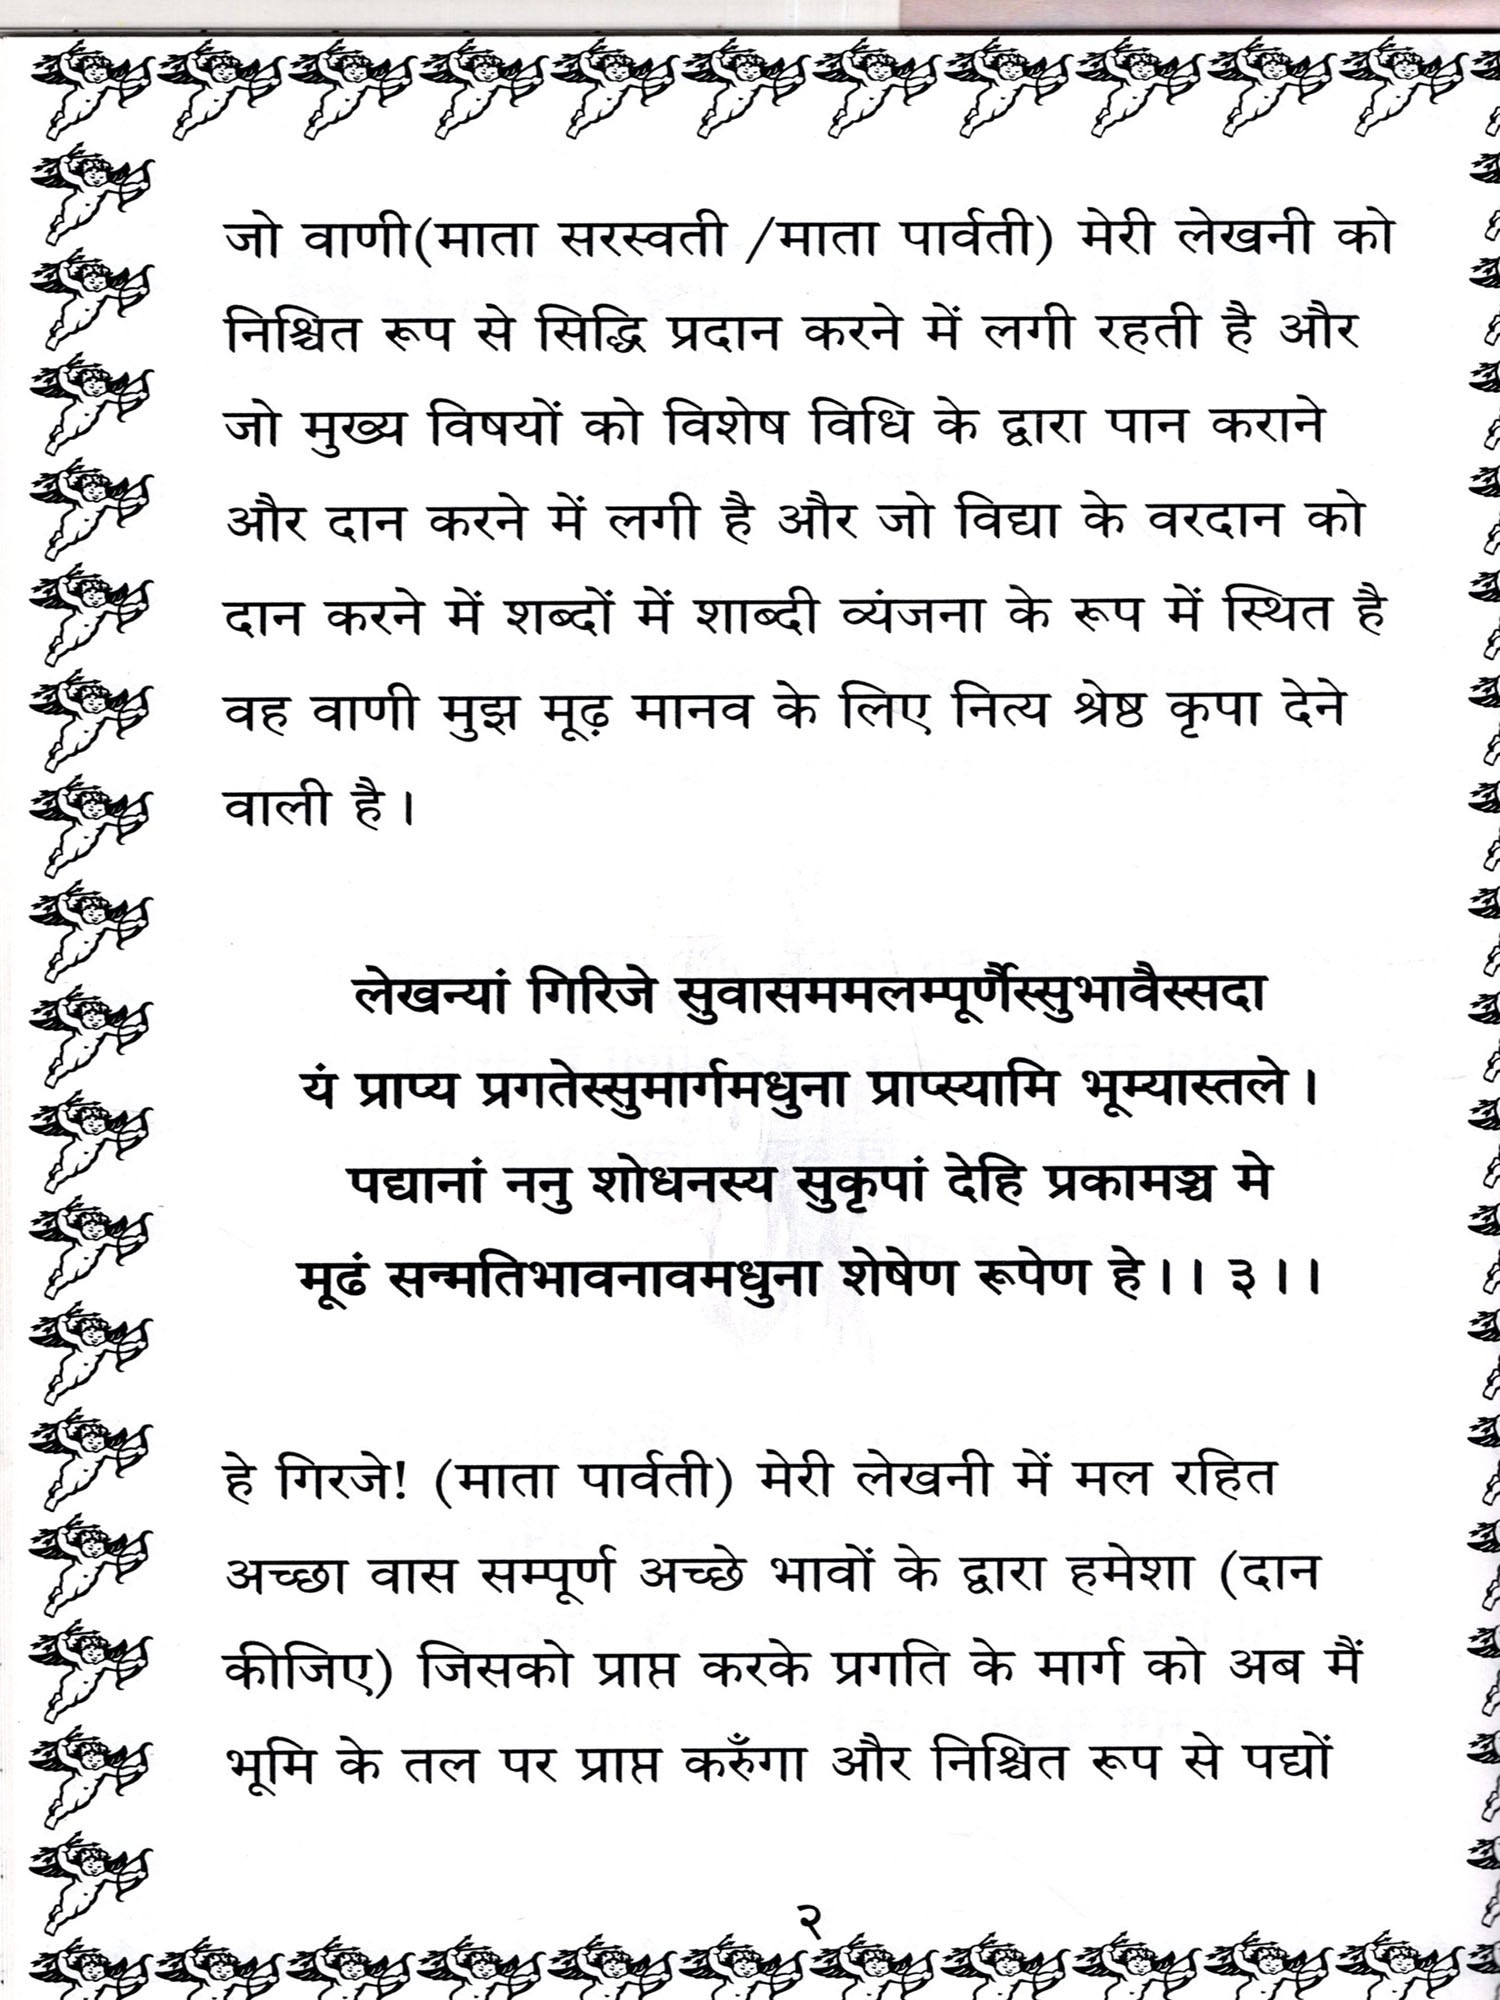 जो वाणी(माता सरस्वती /माता पार्वती) मेरी लेखनी को
निश्चित रूप से सिद्धि प्रदान करने में लगी रहती है और
जो मुख्य विषयों को विशेष विधि के द्वारा पान कराने
और दान करने में लगी है और जो विद्या के वरदान को
दान करने में शब्दों में शाब्दी व्यंजना के रूप में स्थित है
वह वाणी मुझ मूढ़ मानव के लिए नित्य श्रेष्ठ कृपा देने
वाली है।
लेखन्यां गिरिजे सुवासममलम्पूर्णैस्सुभावैस्सदा
यं प्राप्य प्रगतेस्सुमार्गमधुना प्राप्स्यामि भूम्यास्तले।
पद्यानां ननु शोधनस्य सुकृपां देहि प्रकामञ्च मे
मूढं सन्मतिभावनावमधुना शेषेण रूपेण हे।। ३।।
हे गिरजे! (माता पार्वती) मेरी लेखनी में मल रहित
अच्छा वास सम्पूर्ण अच्छे भावों के द्वारा हमेशा (दान
कीजिए) जिसको प्राप्त करके प्रगति के मार्ग को अब मैं
भूमि के तल पर प्राप्त करुँगा और निश्चित रूप से पद्यों
२